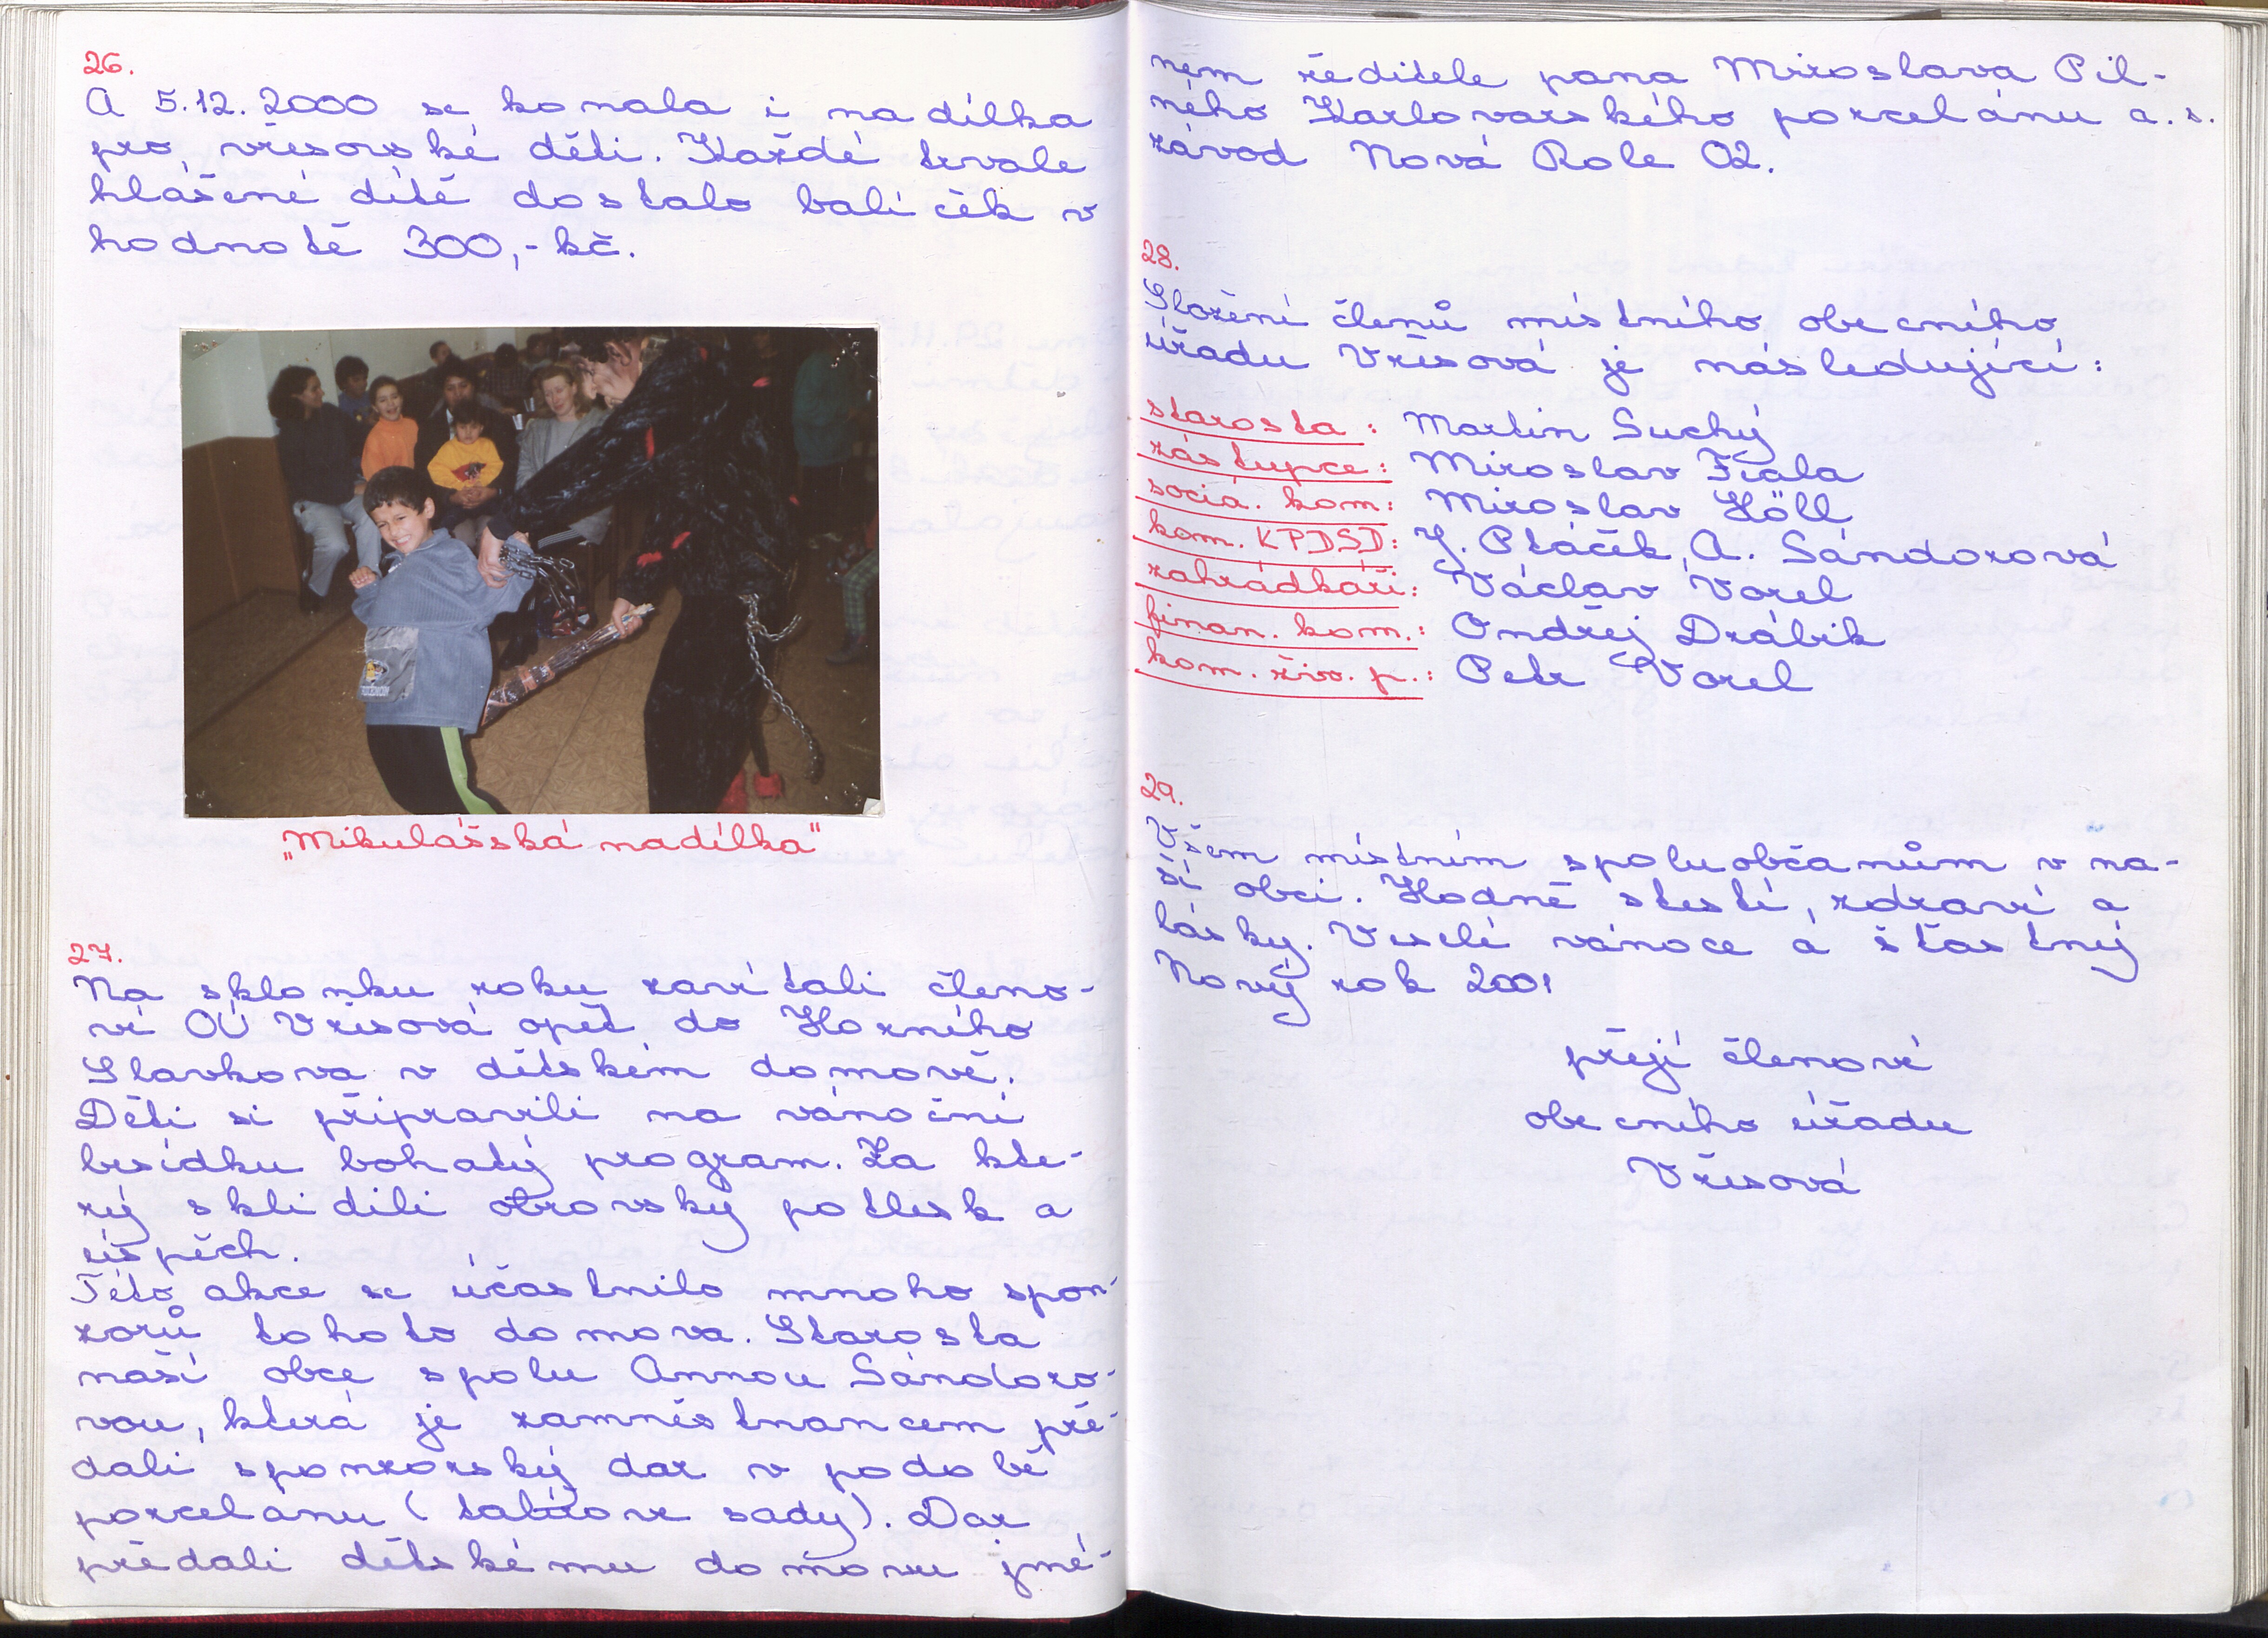 26.
A 5.12. 2000 se konala i nadílka
pro vřesovské děti. Každé trvale
hlášené dítě dostalo balíček v
hodnotě 300,- kč.
„Mikulášská nadílka"
27.
Na sklonku roku zavítali členo-
vé OÚ Vřesová opět do Horního
Slavkova v dětském domově.
Děti si připravili na vánoční
besídku bohatý program. Za kte-
rý sklidili obrovský potlesk a
úspěch.
Této akce se účastnilo mnoho spon-
zorů tohoto domova. Starosta
naší obce spolu Annou Sándoro-
vou, která je zamněstnancem pře-
dali sponzorský dar v podobě
porcelánu ( talířové sady). Dar
předali dětskému domovu jmé-
ném ředitele pana Miroslava Pil-
ného Karlovarského porcelánu a.s.
závod Nová Role 02.
28.
Složení členů místního obecního
úřadu Vřesová je následující:
starosta : Martin Suchý
zástupce: Miroslav Fiala
sociá. kom: Miroslav Höll
kom. KPDSD: J. Ptáček, A. Sándorová
zahrádkáři: Václav Vorel
finan. kom.: Ondřej Drábik
kom. živ. p.: Petr Vorel
29.
Všem místním spoluobčanům v na-
ší obci. Hodně štestí, zdraví a
lásky. Veselé vánoce a šťastný
Nový rok 2001
přejí členové
obecního úřadu
Vřesová